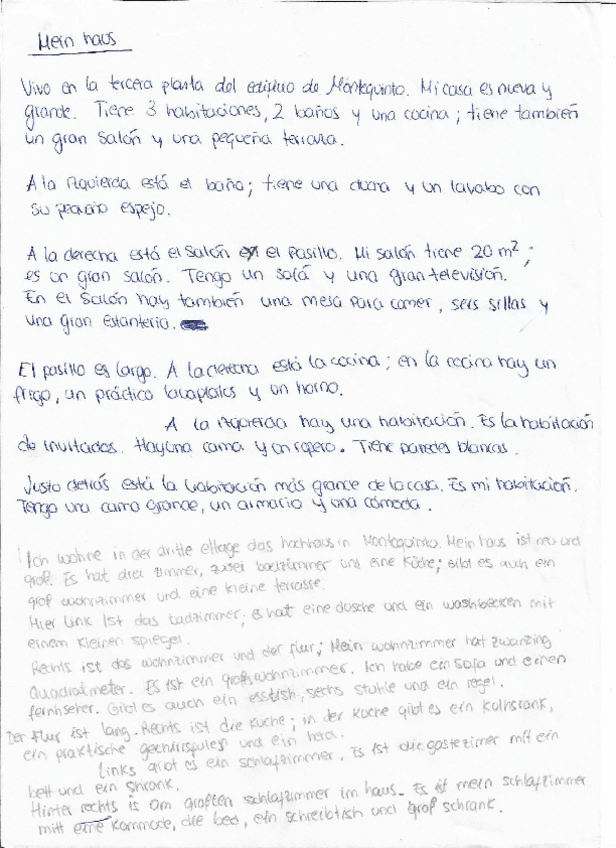 Mein haus
Vivo en la tercera planta del edificio de Montequinto. Mi casa es nueva y
grande. Tiene 3 habitaciones, 2 baños y una cocina; tiene también
un gran salón y una pequeña terraza.
A la izquierda está el baño; tiene una ducha y un lavabo con
su pequeño espejo.
A la derecha está el salón el pasillo. Mi salón tiene 20 m²;
es un gran salón. Tengo un sofá y una gran televisión.
En el salón hay también una mesa para comer, seis sillas y
una gran estantería.
El pasillo es largo. A la derecha está la cocina; en la cocina hay un
frigo, un práctico lavaplatos y un horno.
A la izquierda hay una habitación. Es la habitación
de invitados. Hay una cama y un ropero. Tiene paredes blancas.
Justo detrás está la habitación más grande de la casa. Es mi habitación.
Tengo una cama grande, un armario y una cómoda.
Ich wohne in der dritte ettage das hochhaus in Montequinto. Mein haus ist neu und
groß. Es hat drei zimmer, zwei badzimmer und eine Küche; gibt es auch ein
groß wohnzimmer und eine kleine terrasse.
Hier link ist das badzimmer; es hat eine dusche und ein washbecken mit
einem kleinen spiegel.
Rechts ist das wohnzimmer und der flur; Mein wohnzimmer hat zwanzing
Quadratmeter. Es ist ein groß wohnzimmer. Ich habe ein sofa und einen
fernhseher. Gibt es auch ein esstish, sechs stuhle und ein regel.
Der Flur ist lang. Rechts ist die kuche; in der kuche gibt es ein
ein praktische und ein herd.
links gibt es ein schlafzimmer. Es ist die gastezimer mit ein
bett und ein shronk.
Hinter rechts is am großten schlafzimmer im haus. Es ist mein schlafzimmer
mitt eine kommode, die bed, ein schreibtish und groß schrank.